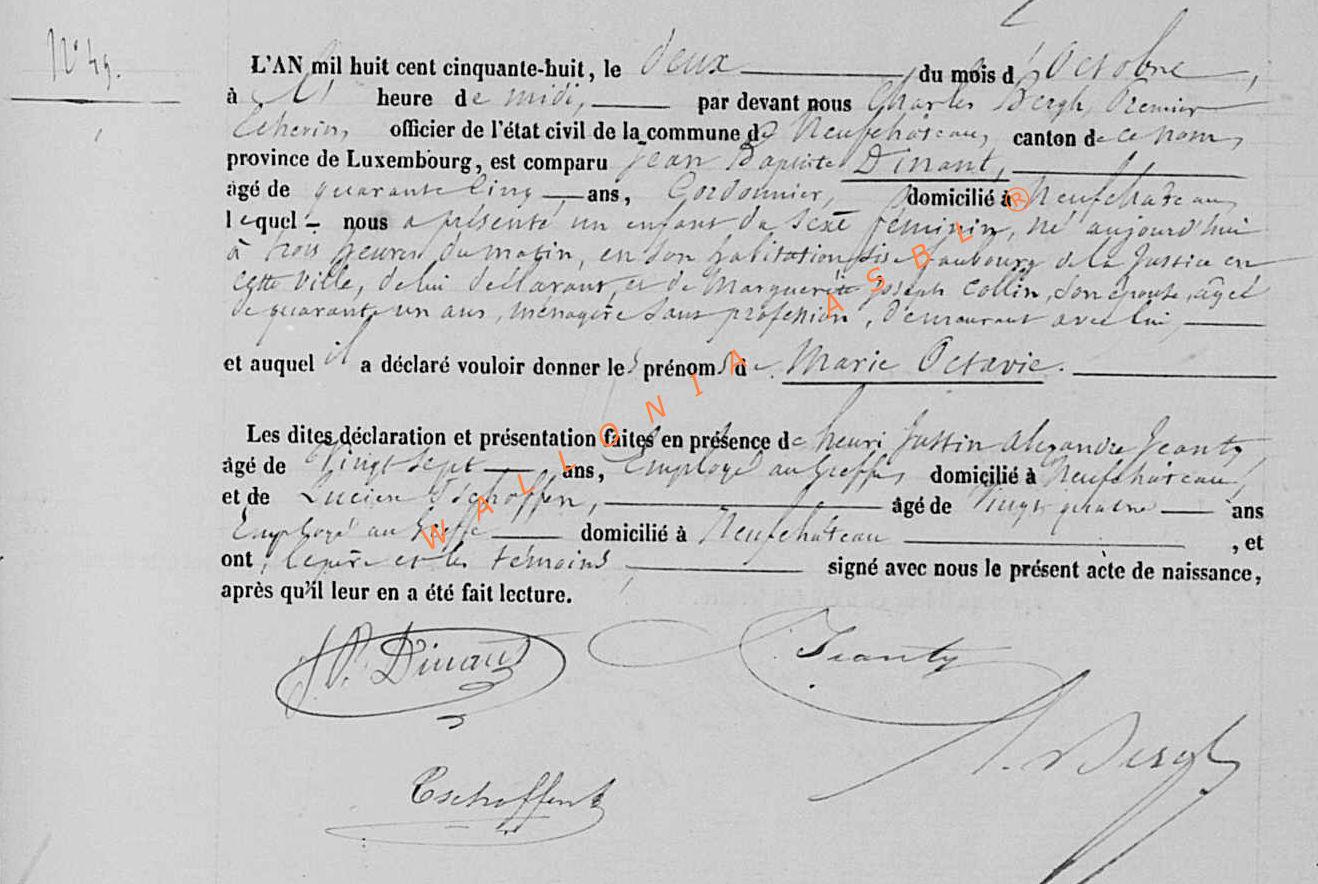 N° 49.
L'AN mil huit cent cinquante-huit, le deux du mois d'Octobre,
à l' heure de midi, par devant nous Charles Bergh, Premier
Echevin, officier de l'état civil de la commune de Neufchâteau, canton de ce nom,
province de Luxembourg, est comparu Jean Baptiste Dinant,
âgé de quarante cinq ans, Cordonnier, domicilié à Neufchateau,
lequel nous a présenté un enfant du sexe féminin, né aujourd'hui
à trois heures du matin, en son habitation sise faubourg de la Justice en
cette ville, de lui déclarant, et de Marguerite Joseph Collin, son épouse, âgée
de quarante un ans, ménagère sans profession, demeurant avec lui,
et auquel il a déclaré vouloir donner les prénoms de Marie Octavie.
Les dites déclaration et présentation faites en présence de henri Justin Alexandre Jeanty,
âgé de Vingt sept ans, Employé au Greffe, domicilié à Neufchâteau,
et de Lucien Tschoffen, âgé de Vingt quatre ans
Employé au Greffe domicilié à Neufchâteau , et
ont, le père et les témoins, signé avec nous le présent acte de naissance,
après qu'il leur en a été fait lecture.
J. P. Dinant
Jeanty
Bergh
Tschoffen
WALLONIA ASBL ®